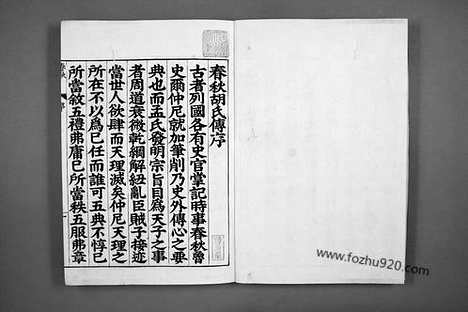 春秋胡氏傳序
古者列國各有史官掌記時事春秋魯
史爾仲尼就加筆削乃史外傳心之要
典也而孟氏發明宗旨目爲天子之事
者周道衰微乾綱解紐亂臣賊子接迹
當世人欲肆而天理滅矣仲尼天理之
所在不以爲己任而誰可五典弗惇己
所當敘五禮弗庸己所當秩五服弗章
www.fozhu920.com